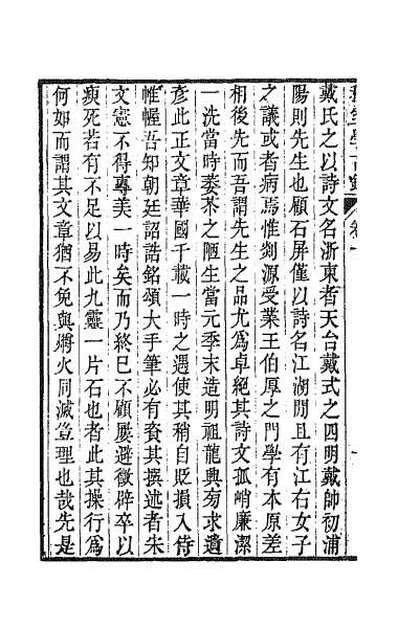 戴氏之以詩文名浙東者天台戴式之四明戴帥初浦
陽則先生也顧石屏僅以詩名江湖閒且有江右女子
之議或者病焉惟剡源受業王伯厚之門學有本原差
相後先而吾謂先生之品尤爲卓絕其詩文孤峭廉潔
一洗當時萎苶之陋生當元季末造明祖龍興旁求遺
彥此正文章華國千載一時之遇使其稍自貶損入侍
帷幄吾知朝廷詔誥銘頌大手筆必有資其撰述者朱
文憲不得專美一時矣而乃終已不顧屢避徵辟卒以
瘐死若有不足以易此九靈一片石也者此其操行爲
何如而謂其文章猶不免與爝火同滅豈理也哉先是